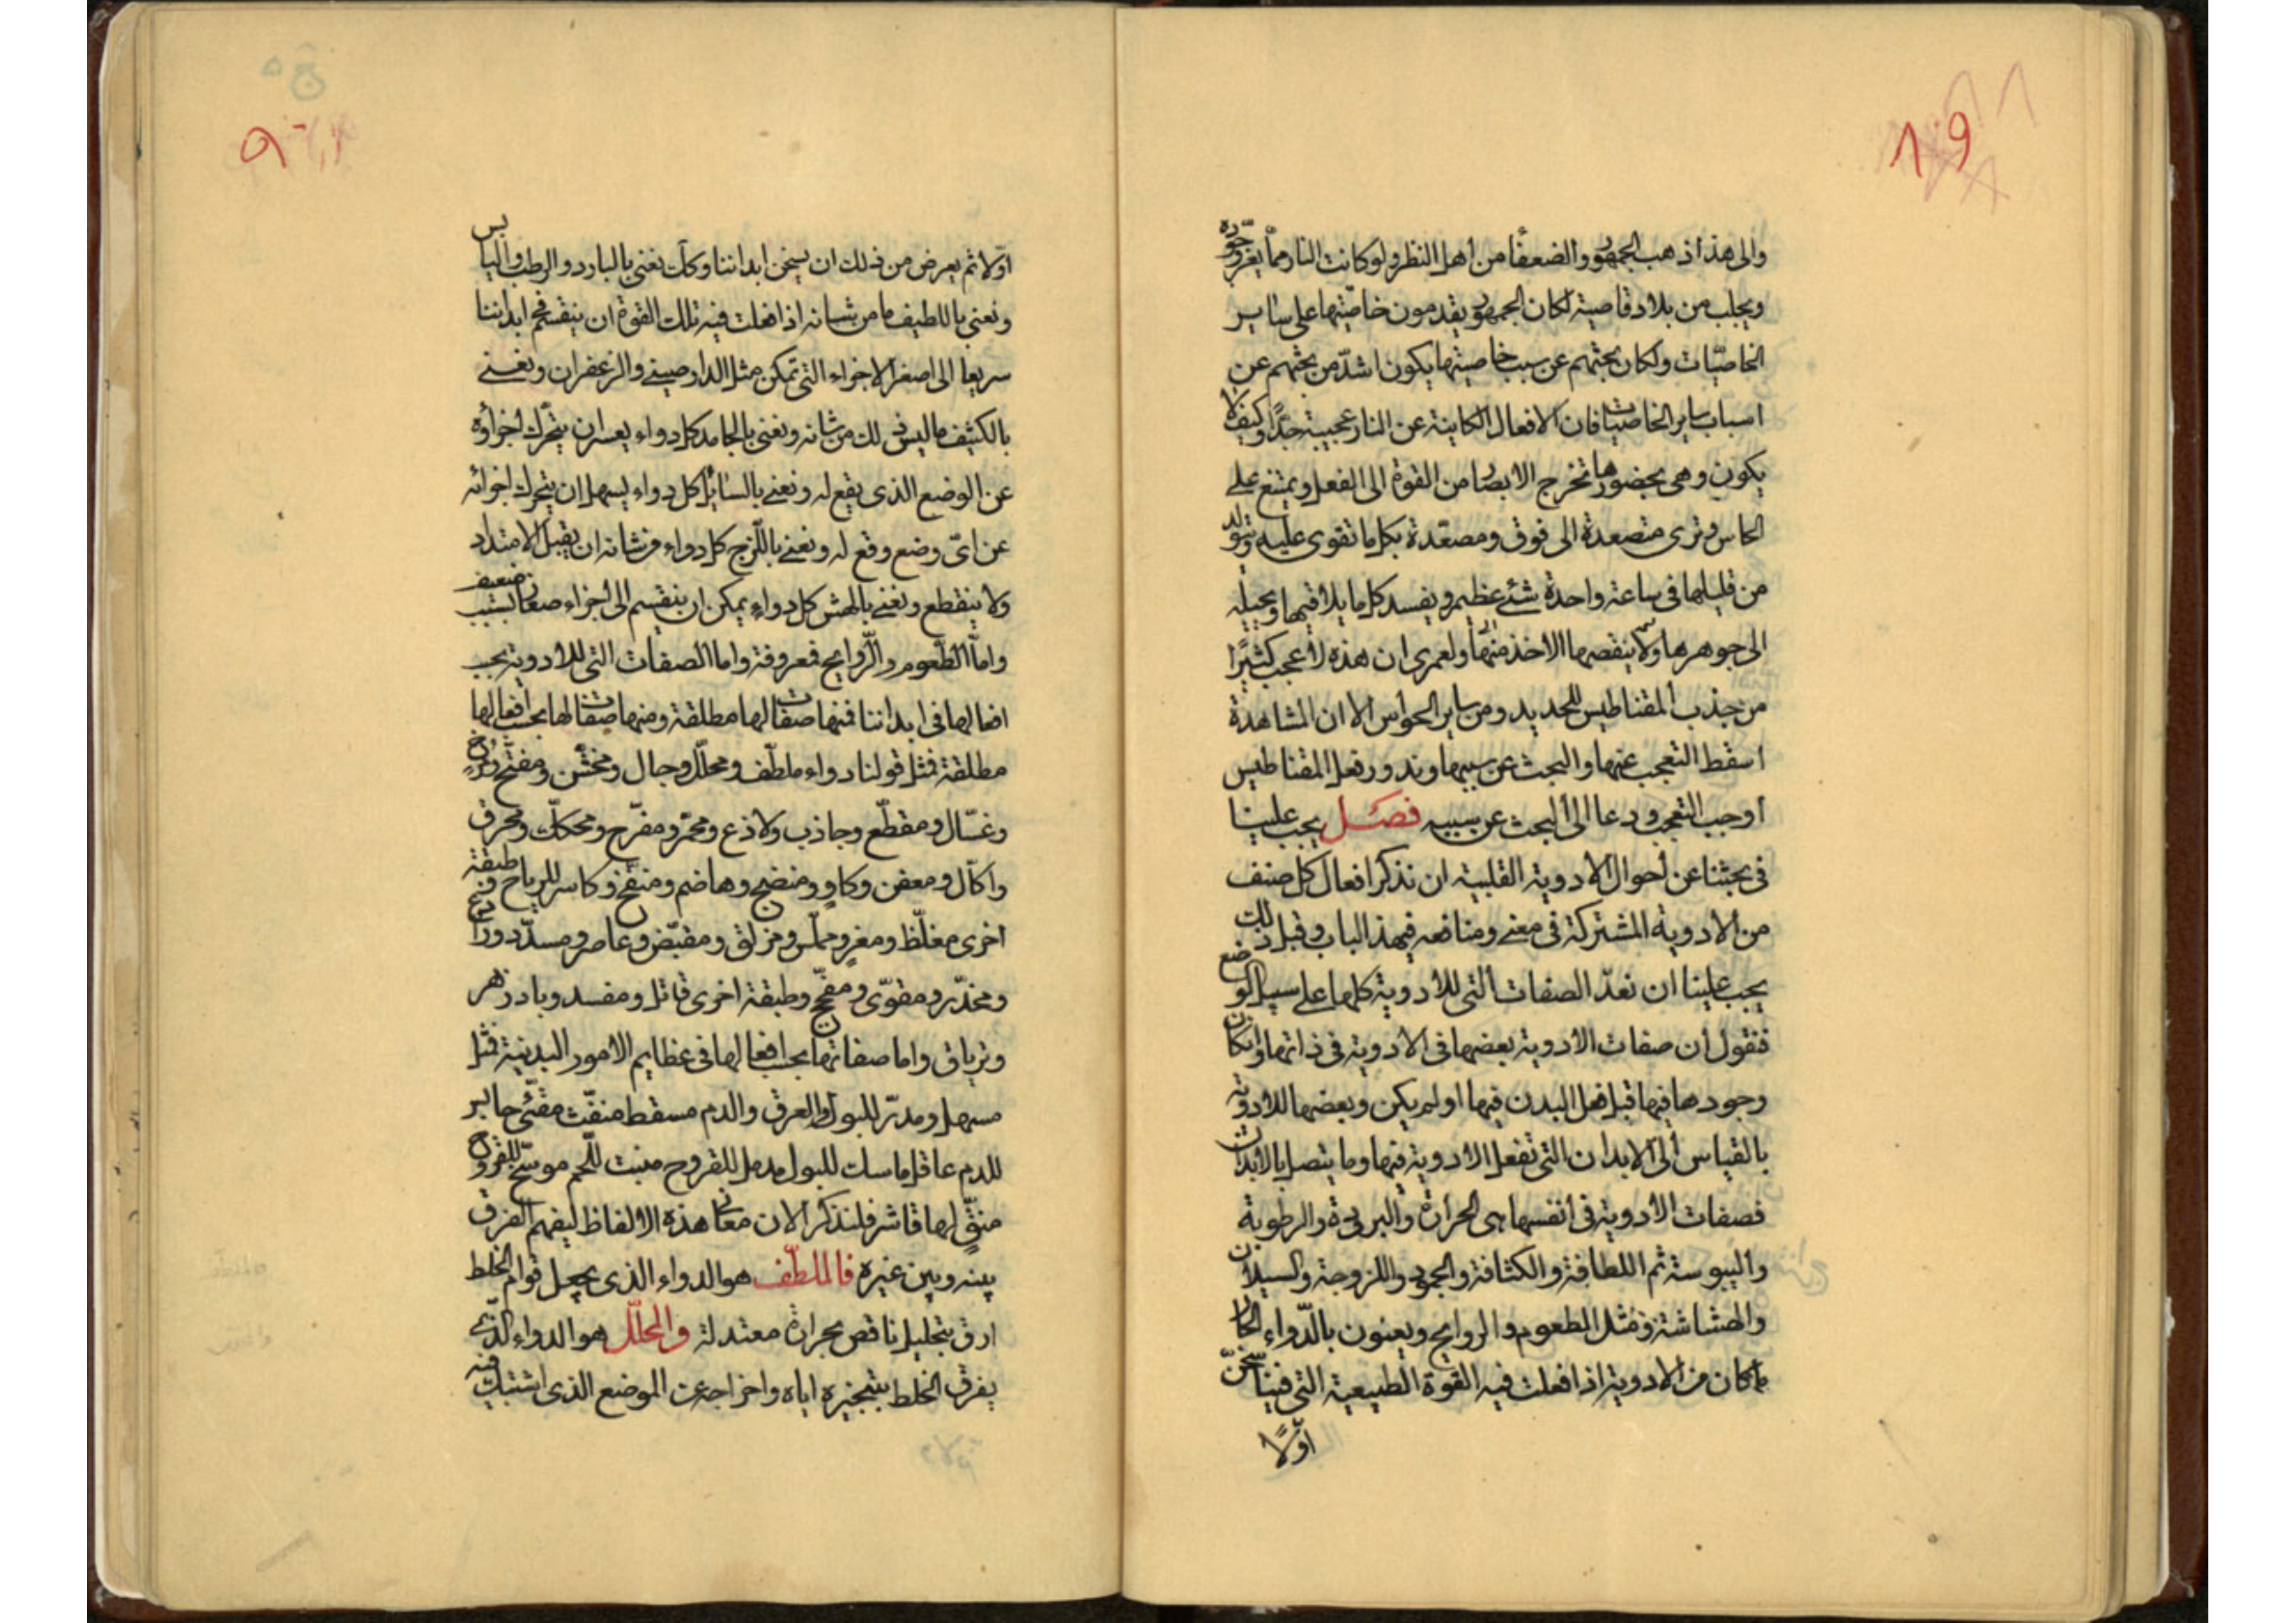 والى هذا ذهب الجمهور والضعفا من أهل النظر ولو كانت النار مما يعز وجوده
ويجلب من بلاد قاصية لكان الجمهور يقدمون خاصّيتها على ساير
الخاصيّات ولكان بحثهم عن سبب خاصيتها يكون اشدّ من بحثهم عن
اسباب ساير الخاصيات فان الافعال الكاينة عن النار عجيبة جدًّا وكيف لا
يكون وهى بحضورها تخرج الابصار من القوة الى الفعل ويمتنع على
الحاس وترى متصعدة الى فوق ومصعّدة بكل ما تقوى عليه ويتولد
من قليلها فى ساعة واحدة شئ عظيم ويفسد كل ما يلاقيها ويحيله
الى جوهرها ولا ينقصها الاخذ منها ولعمرى ان هذه لاعجب كثيرًا
من جذب المقناطيس للحديد ومن ساير الحواس الا ان المشاهدة
اسقط التعجب عنها والبحث عن سببها وندور فعل المقناطيس
أوجب التعجب ودعا الى البحث عن سببه فصل يجب علينا
فى بحثنا عن أحوال الادوية القلبية ان نذكر افعال كل صنف
من الادوية المشتركة فى معنى ومنافعه فيهذ الباب وقبل ذلك
يجب علينا ان نعدّ الصفات التى للادوية كلها على سبيل الوضع
فنقول ان صفات الادوية بعضها فى الادوية فى ذاتها وان كان
وجودها فيها قبل فعل البدن فيها او لم يكن وبعضها للادوية
بالقياس الى الابدان التى تفعل الادوية فيها وما يتصل بالابدان
فصفات الادوية فى انفسها هى الحرارة والبرودة والرطوبة
واليبوسة ثم اللطافة والكثافة والجمود واللزوجة والسيلان
والهشاشة ومثل الطعوم والروايح ويعنون بالدّواء الحار
ما كان من الادوية اذا فعلت فيه القوة الطبيعية التى فينا سخن
اوّلًا
اوّلا ثم يعرض من ذلك ان يسخن ابداننا وكك نعنى بالبارد والرطب واليابس
ونعنى باللطيف ما من شانه اذا فعلت فيه تلك القوة ان ينقسم فى ابداننا
سريعا الى اصغر الاجزاء التى تمكن مثل الدارصينى والزعفران ونعنى
بالكثيف ما ليس ذلك من شانه ونعنى بالجامد كل دواء يعسر ان يتحرّك اجزاؤه
عن الوضع الذى يقع له ونعنى بالسائل كل دواء يسهل ان يتحرك اجزائه
عن اىّ وضع وقع له ونعنى باللّزج كل دواء من شانه ان يقبل الامتداد
ولا ينقطع ونعنى بالهش كل دواء يمكن ان ينقسم الى اجزاء صغار بسبب ضعيف
وامّا الطّعوم والرّوايح فمعروفة واما الصفات التى للادوية بحب
افعالها فى ابداننا فمنها صفات لها مطلقة ومنها صفات لها بحسب افعالها
مطلقة فمثل قولنا دواء ملطّف ومحلّل وجال ومخشّن ومفتّح ومرخ
وغسّال ومقطّع وجاذب ولاذع ومحمّر ومقرّح ومحكّك ومحرق
واكّال ومعفن وكاو ومنضج وهاضم ومنفّخ وكاسر للرياح وفى طبقة
اخرى مغلّظ ومغرٍ ومملّس ومزلق ومقبّض وعاصر ومسدّد ورادع
ومخدّر ومقوّى ومفجّج وطبقة اخرى قاتل ومفسد وبادزهر
وترياق واما صفاتها بحسب افعالها فى عظايم الامور البدنية فمثل
مسهل ومدرّ للبول والعرق والدم مسقط منفّث مقئّى حابر
للدم عاقل ماسك للبول مدمل للقروح منبت للّحم موسّخ للقروح
منقٍّ لها قاشر فلنذكر الان معانى هذه الالفاظ ليفهم الفرق
بينه وبين غيره فالملطّف هو الدواء الذى يجعل قوام الخلط
ارق بتحليل ناقص بحرارة معتدلة والمحلّل هو الدواء الّذى
يفرق الخلط بتبخيره اياه واخراجه عن الموضع الذى اشتبك فيه